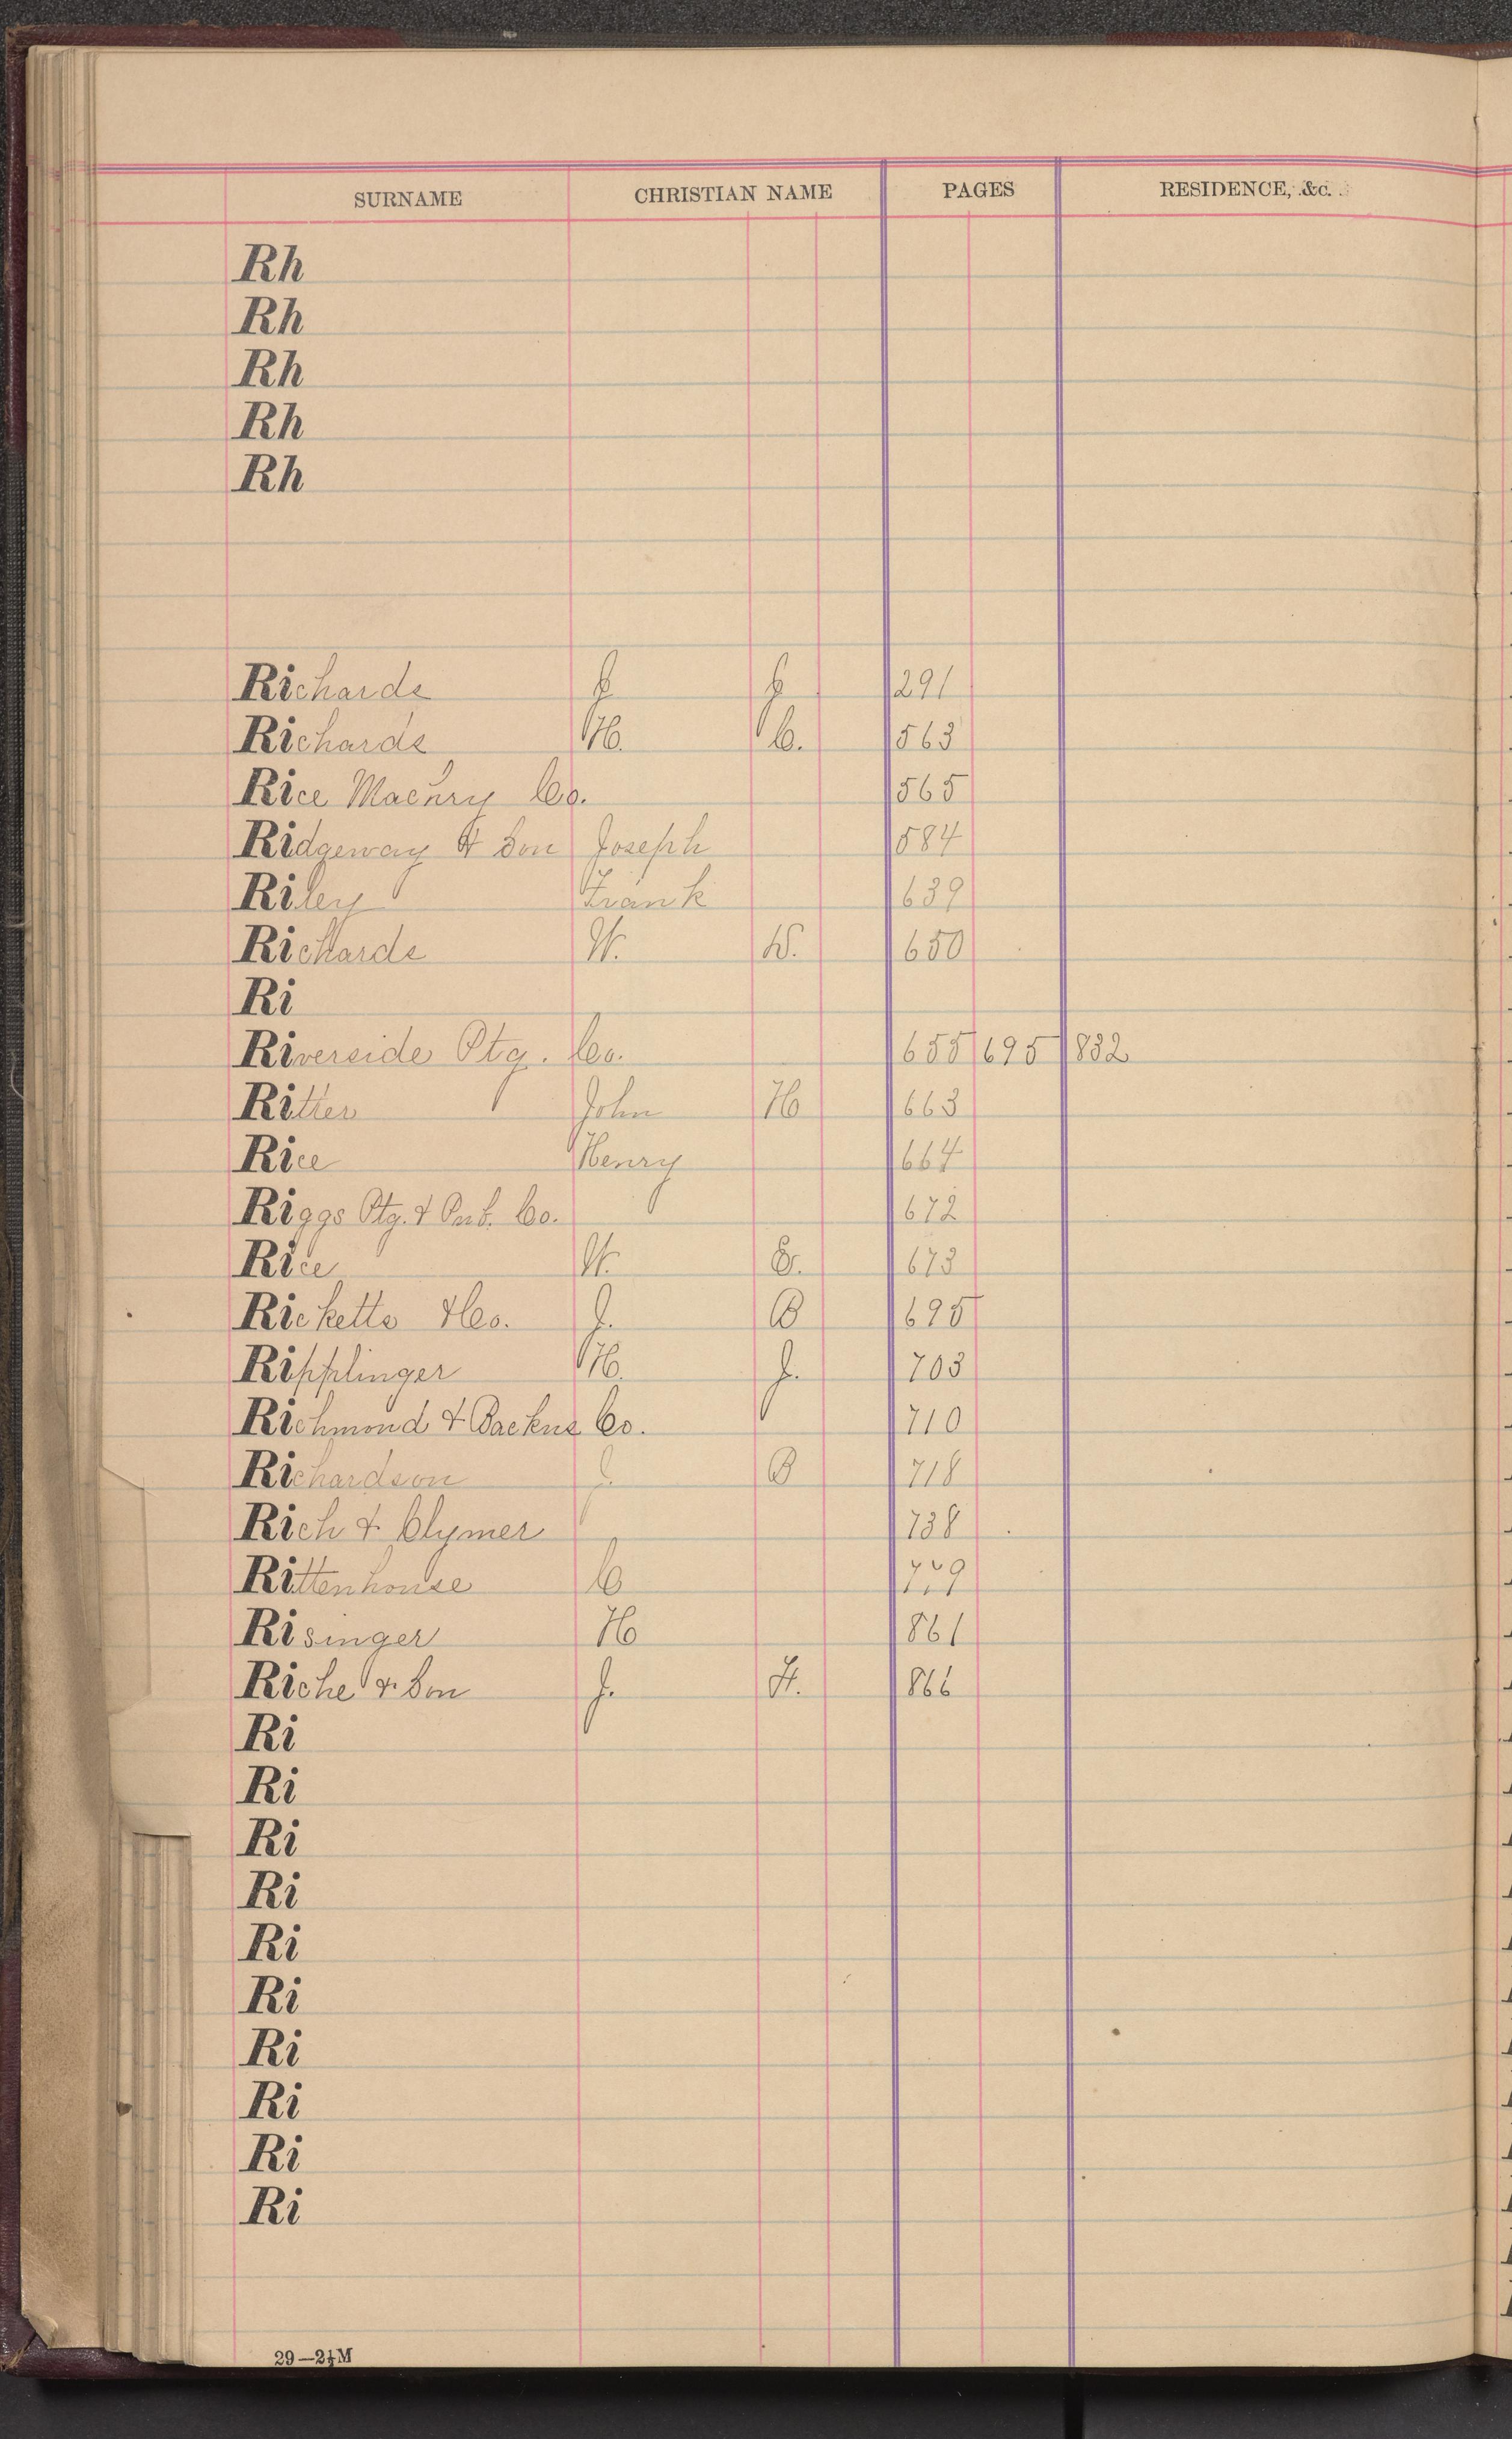 SURNAME CHRISTIAN NAME PAGES RESIDENCE, &c.
Rh
Rh
Rh
Rh
Rh
Richards J J 291
Richards H. C. 563
Rice Macnry Co. 565
Ridgeway & Son Joseph 584
Riley Frank 639
Richards W. W. 650
Ri
Riverside Ptg. Co. 655 695 832
Ritter John H 663
Rice Henry 664
Riggs Ptg. & Pub. Co. 672
Rice W. E. 673
Ricketts & Co. J. B 695
Ripplinger H. J. 703
Richmond & Backus Co. 710
Richardson J. B 718
Rich & Clymer 738
Rittenhouse C
Risinger H 861
Riche & Son J. F. 866
Ri
Ri
Ri
Ri
Ri
Ri
Ri
Ri
Ri
Ri
29—2½M